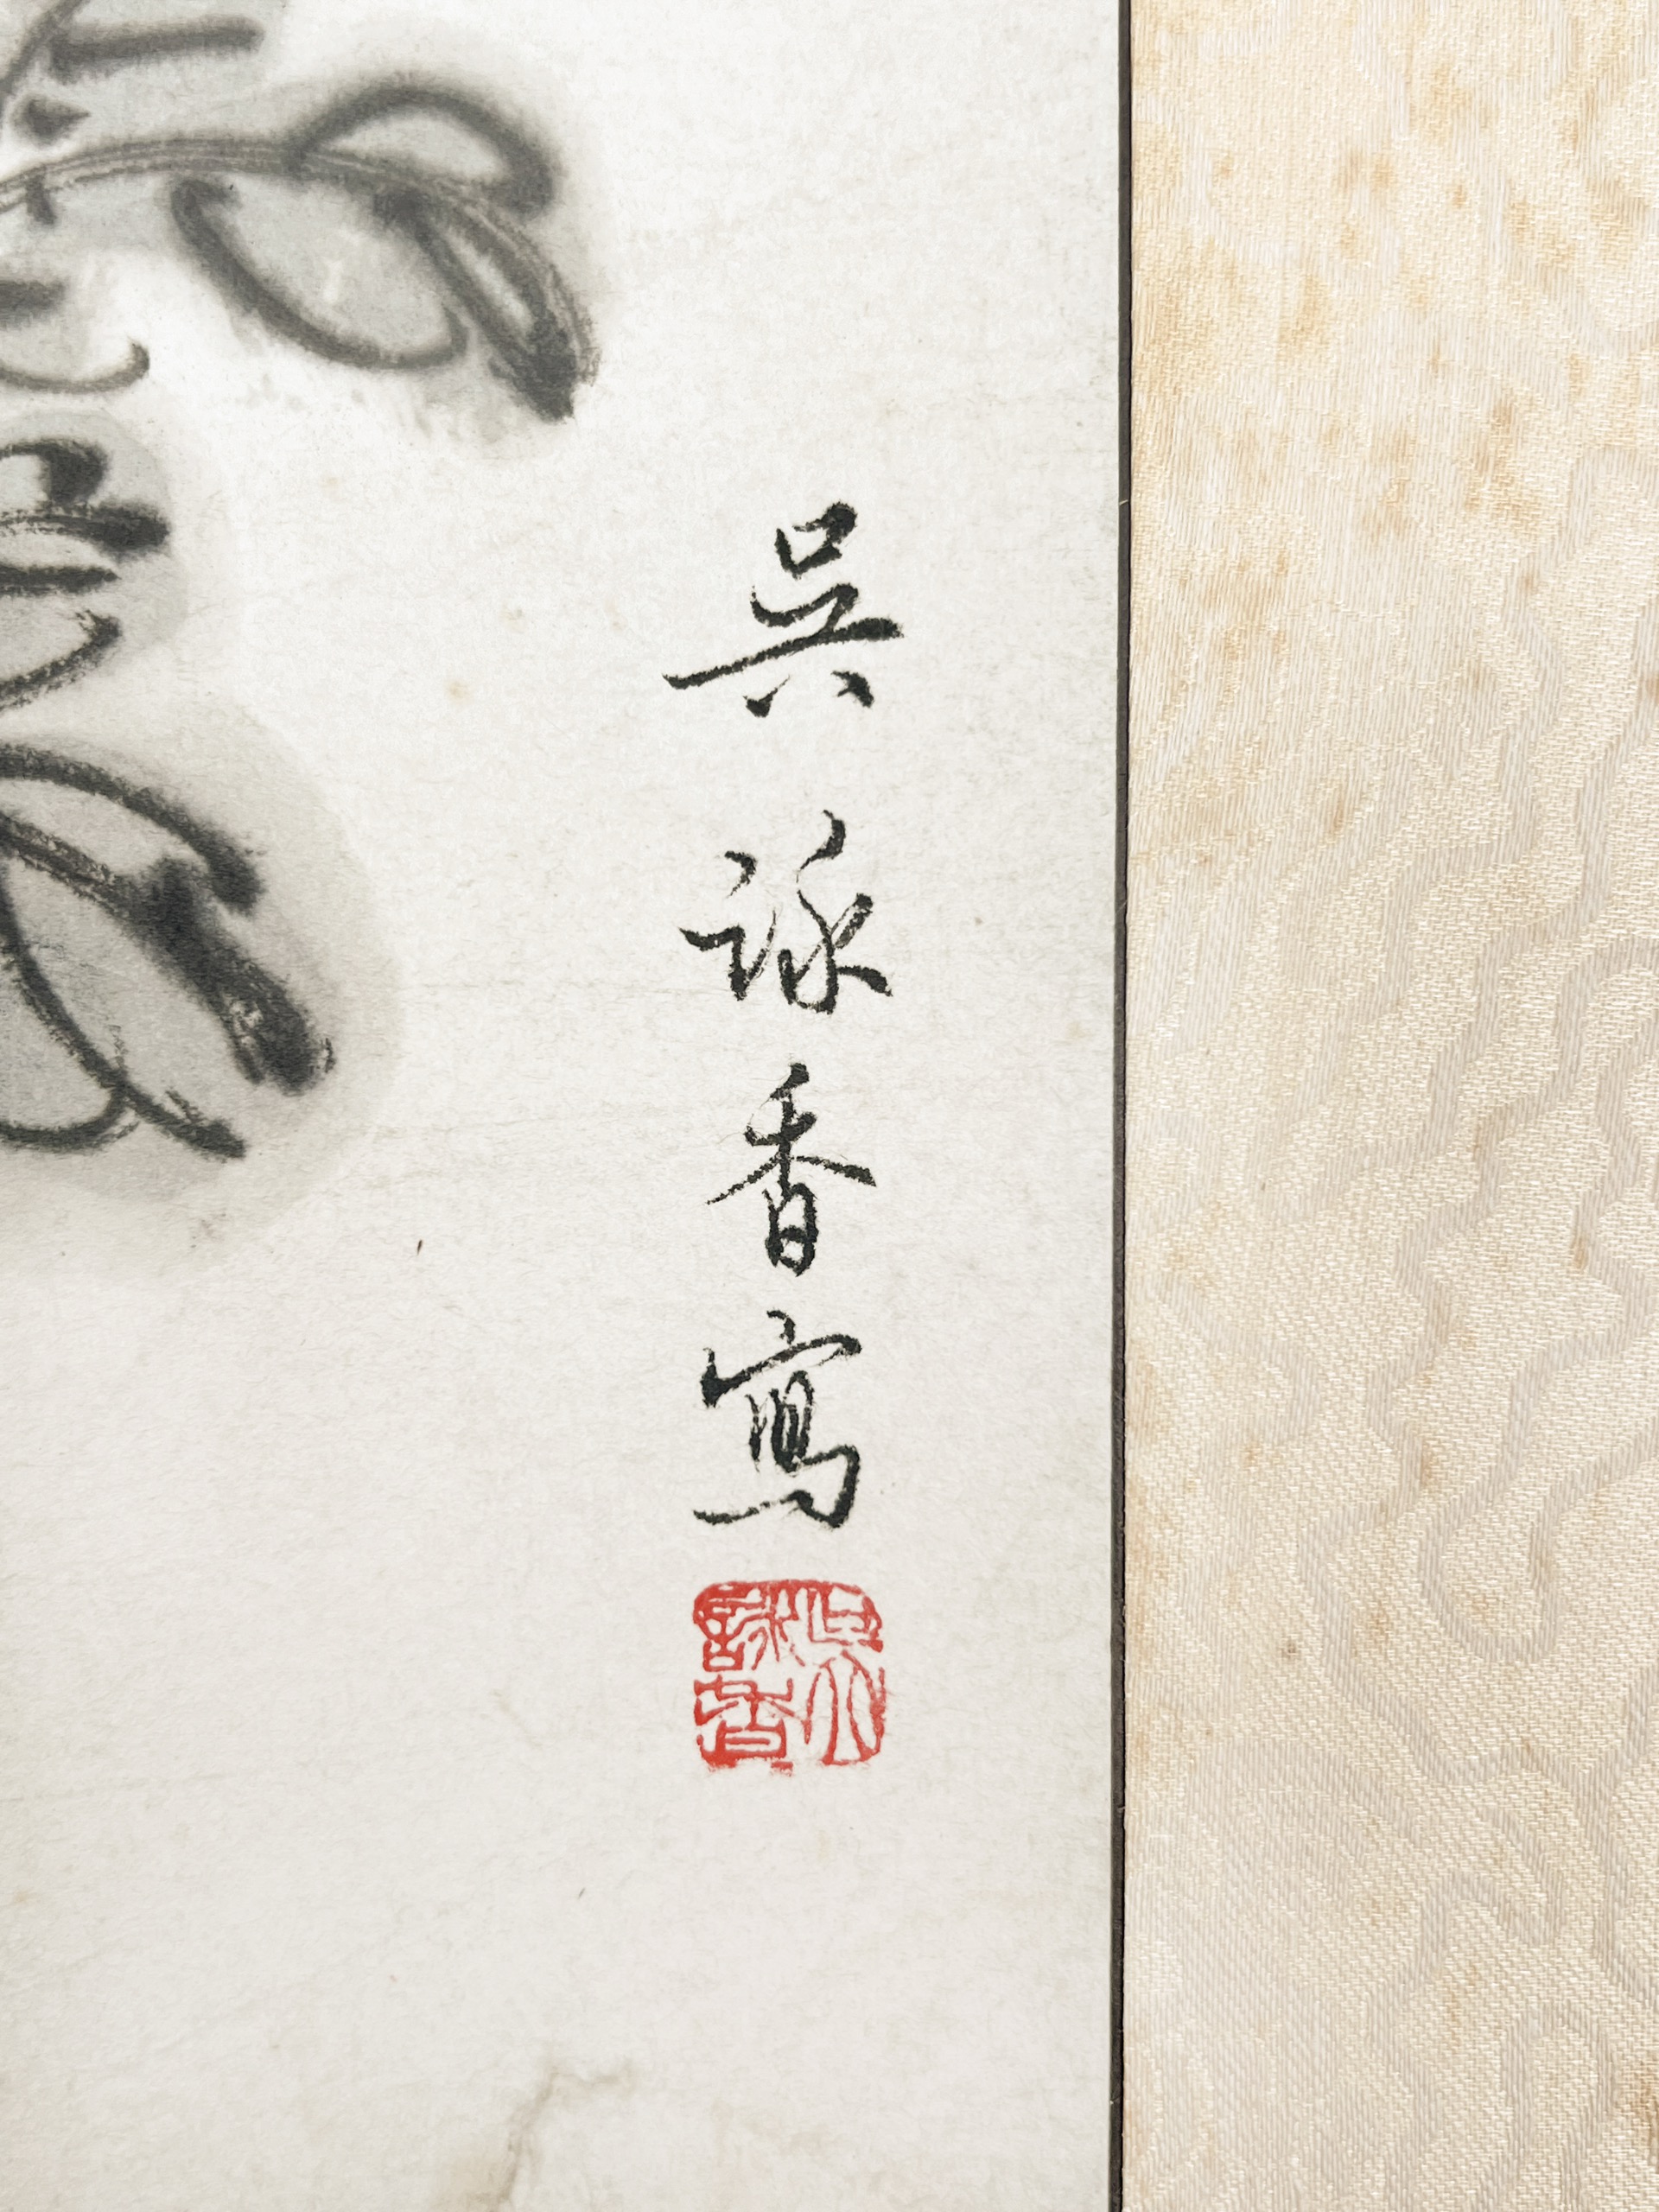 吳詠香寫
吳詠香